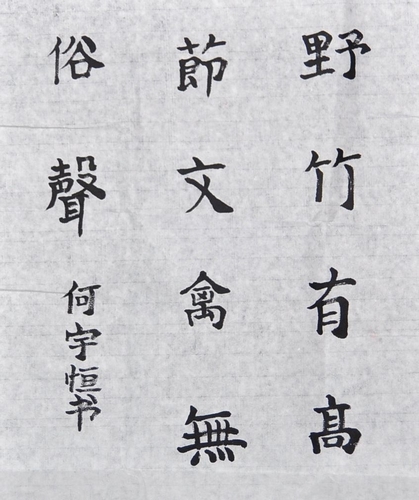 野竹有高
節文禽無
俗聲
何宇恒书